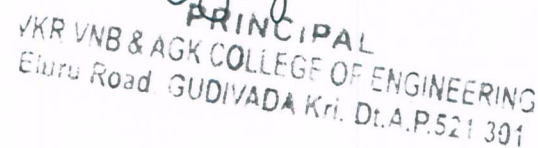 PRINCIPAL
VKR VNB & AGK COLLEGE OF ENGINEERING
Eluru Road. GUDIVADA Kri. Dt.A.P.521 301